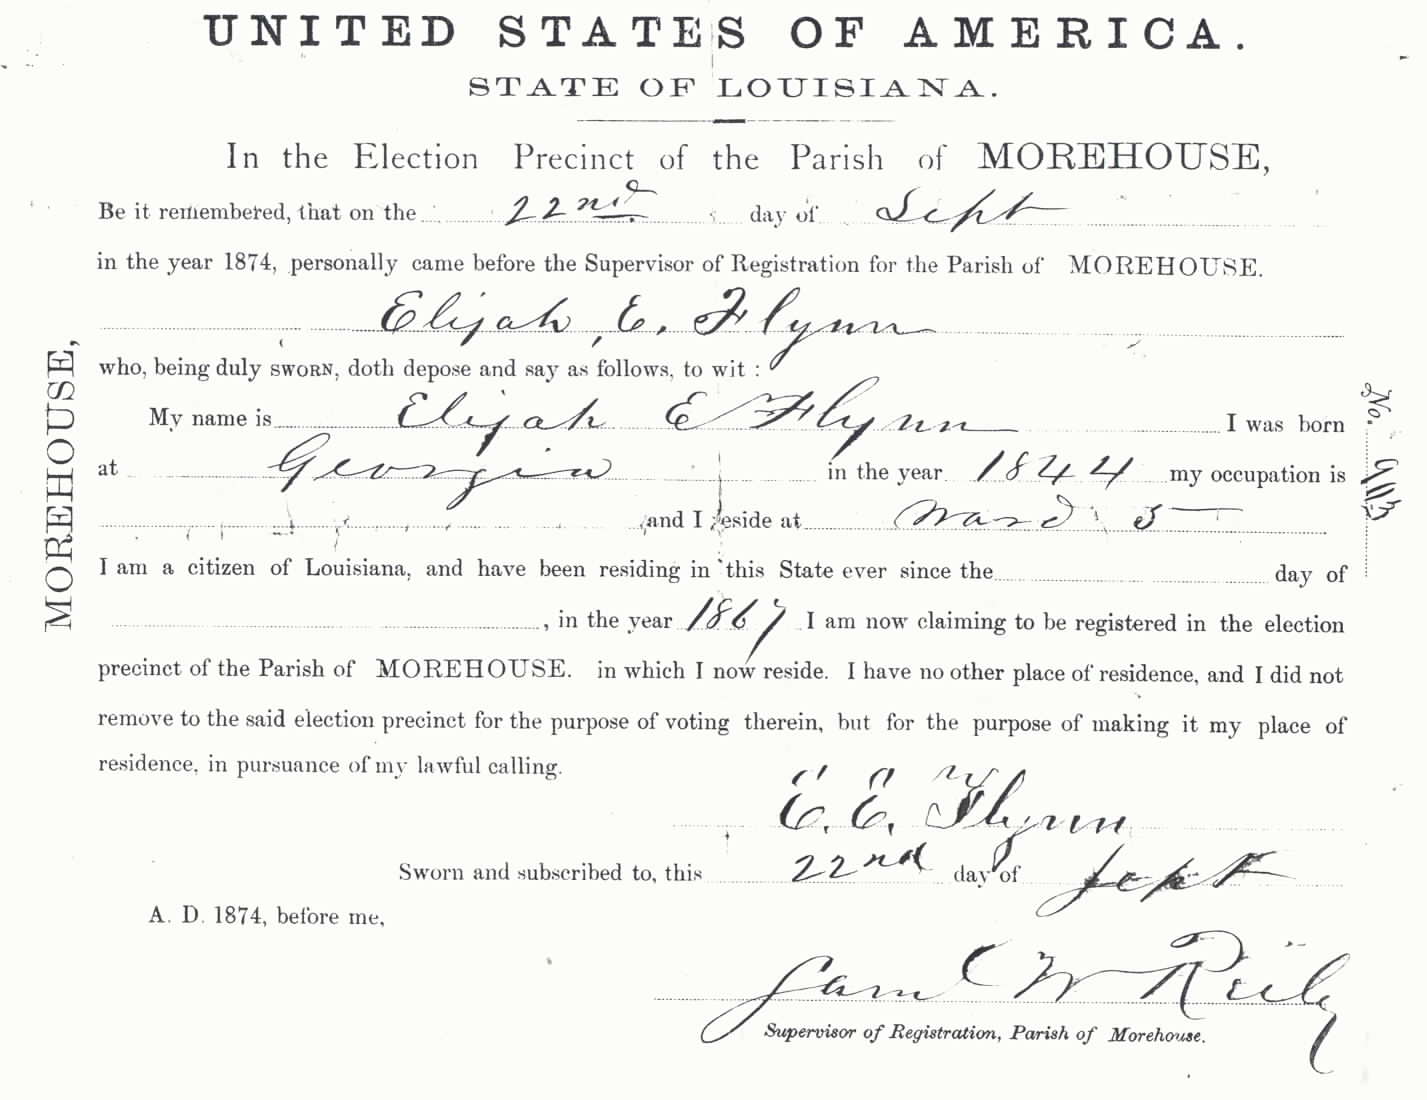 UNITED STATES OF AMERICA.
STATE OF LOUISIANA.
In the Election Precinct of the Parish of MOREHOUSE,
Be it remembered, that on the 22nd day of Sept
in the year 1874, personally came before the Supervisor of Registration for the Parish of MOREHOUSE.
Elijah, E. Flynn
who, being duly SWORN, doth depose and say as follows, to wit :
My name is Elijah E Flynn I was born
at Georgia in the year 1844 my occupation is
and I reside at Ward 5
I am a citizen of Louisiana, and have been residing in this State ever since the day of
, in the year 1867 I am now claiming to be registered in the election
precinct of the Parish of MOREHOUSE. in which I now reside. I have no other place of residence, and I did not
remove to the said election precinct for the purpose of voting therein, but for the purpose of making it my place of
residence, in pursuance of my lawful calling.
E. E. Flynn
Sworn and subscribed to, this 22nd day of Sept
A. D. 1874, before me,
Saml W Reily
Supervisor of Registration, Parish of Morehouse.
MOREHOUSE,
No.